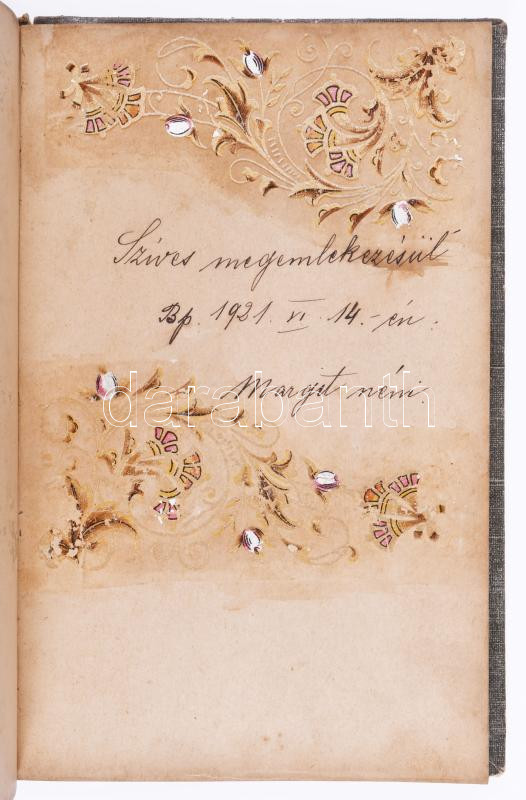 Szíves megemlekezésül
Bp. 1921. VI. 14.-én.
Margit néni
darabanth